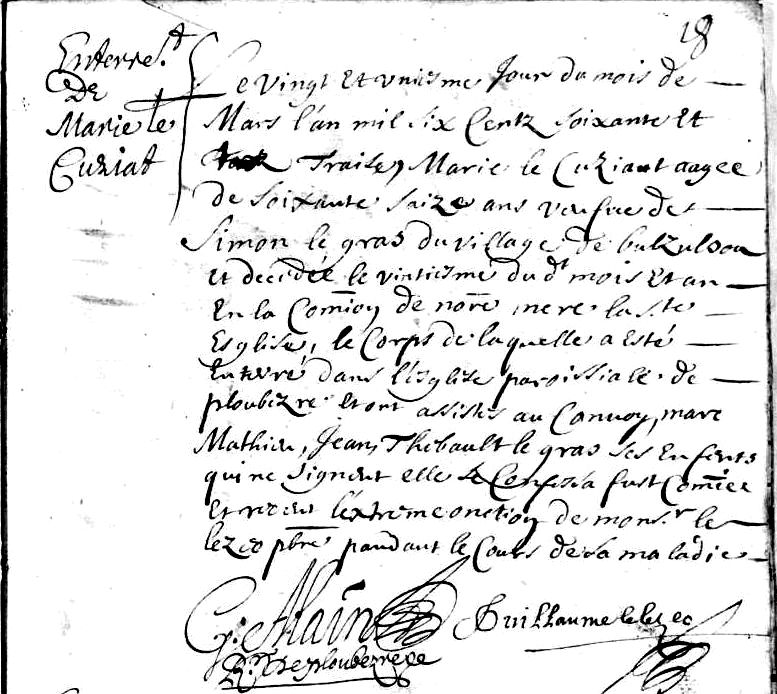 18
Enterre.t
De
Marie le
Cuziat
Le Vingt Et Uniesme Jour du mois de
Mars l'an mil six Centz soixante Et
Traise, Marie le Cuziaut aagee
de soixante saize ans veufue de
Simon le gras du village de
Et decedée le vintiesme du dt mois Et an
En la Comion de nore mere la ste
Esglise, le Corps de laquelle a Esté
Enterré dans l'Esglise paroissiale de
ploubezre Et ont assistés au Convoy, marc
Mathieu, Jean, Thebault le gras ses Enfents
qui ne signent elle se Confessa fust Comiee
Et receut l'extreme onction de mons.r le
lezec pbre pandant le Cours de sa maladie
G: Alain Guillaume le lezec
Rr De ploubezre